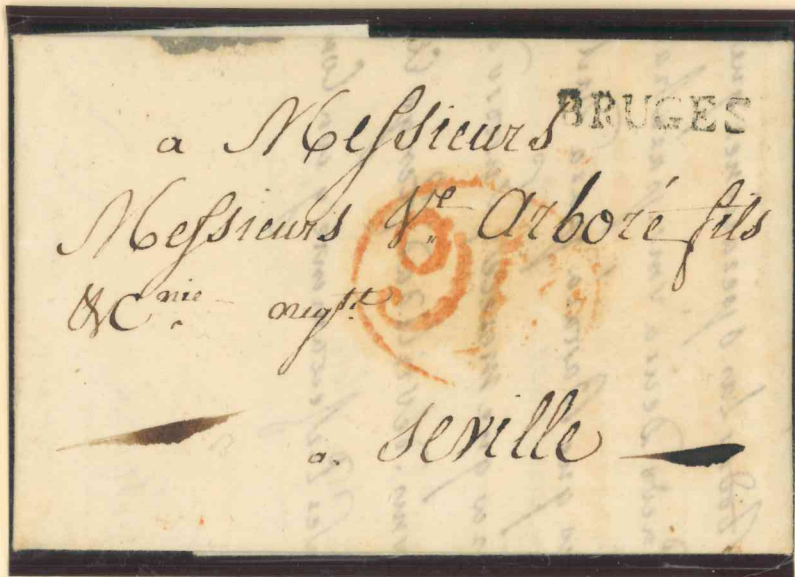 BRUGES
a Messieurs
Messieurs Ve Arboré fils
& Cnie negts
a Seville